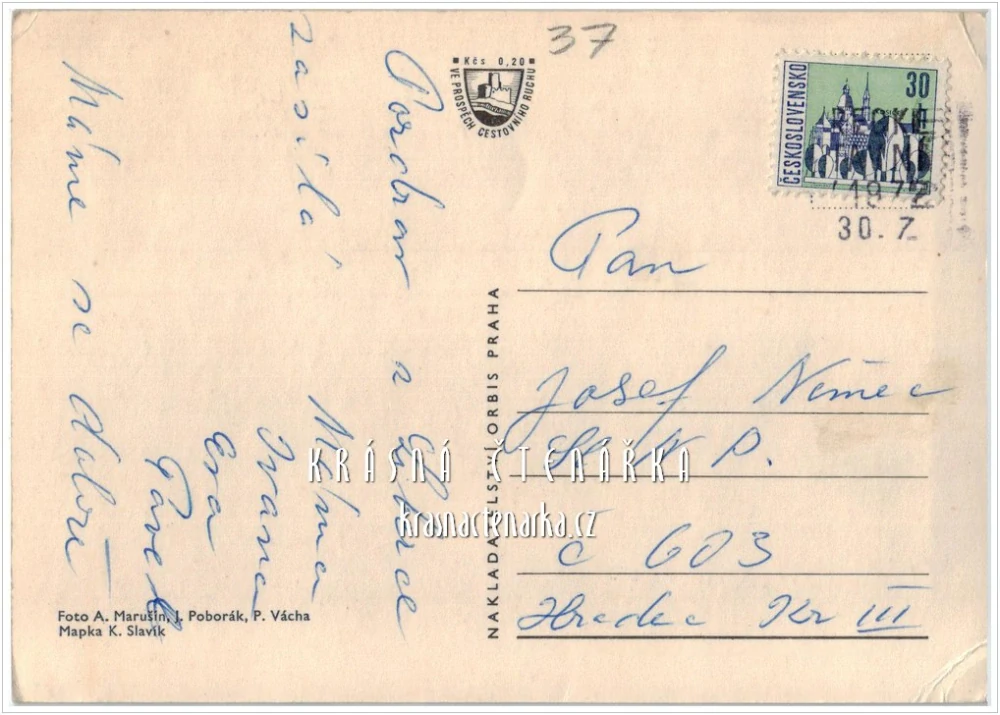 Pozdrav z Liberce
zasílá
Mařna
Ivana
Eva
Pavel
Máme se dobře
37
Kčs 0,20
VE PROSPĚCH CESTOVNÍHO RUCHU
ČESKOSLOVENSKO
30
1972
30.7
Pan
Josef Němec
S N P.
č 603
Hradec Kr III
NAKLADATELSTVÍ ORBIS PRAHA
KRÁSNÁ ČTENÁŘKA
krasnactenarka.cz
Foto A. Marušin, J. Poborák, P. Vácha
Mapka K. Slavík